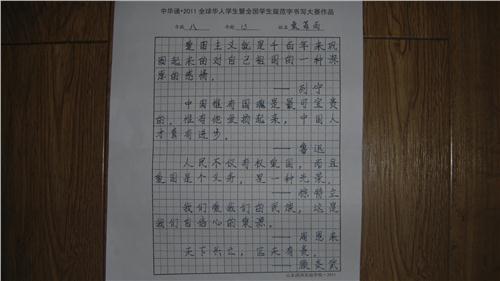 中华诵•2011全球华人学生暨全国学生规范字书写大赛作品
年龄 八 年级 13 姓名
爱国主义就是千百年来巩
固起来的对自己祖国的一种深
厚的感情。
——列宁
中国惟有国魂是最可宝贵
的,惟有他发扬起来,中国人
才有真进步。
——鲁迅
人民不仅有权爱国,而且
爱国是个义务,是一种光荣。
——徐特立
我们爱我们的民族,这是
我们自信心的泉源。
——周恩来
天下兴亡,匹夫有责。
——顾炎武